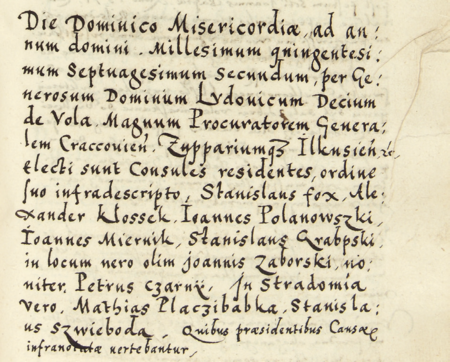 Die Dominico Misericordiæ, ad an:
num domini. Millesimum quingentesi:
mum Septuagesimum Secundum, per Ge:
nerosum Dominum Lvdouicum Decium
de Vola. Magnum Procuratorem Genera:
lem Craccouien. Zuppariumqz Ilkusien
Electi sunt Consules residentes, ordine
suo infradescripto, Stanislaus fox, Ale:
xander Kłossek, Ioannes Polanowszki,
Ioannes Miernik, Stanislaus Grabpski,
in locum uero olim joannis Zaborski, no:
niter, Petrus Czarny, In Stradomia
vero, Mathias Placzibabka, Stanisla:
us Szwieboda, Quibus præsidentibus Causæ
infranotatæ vertebantur,